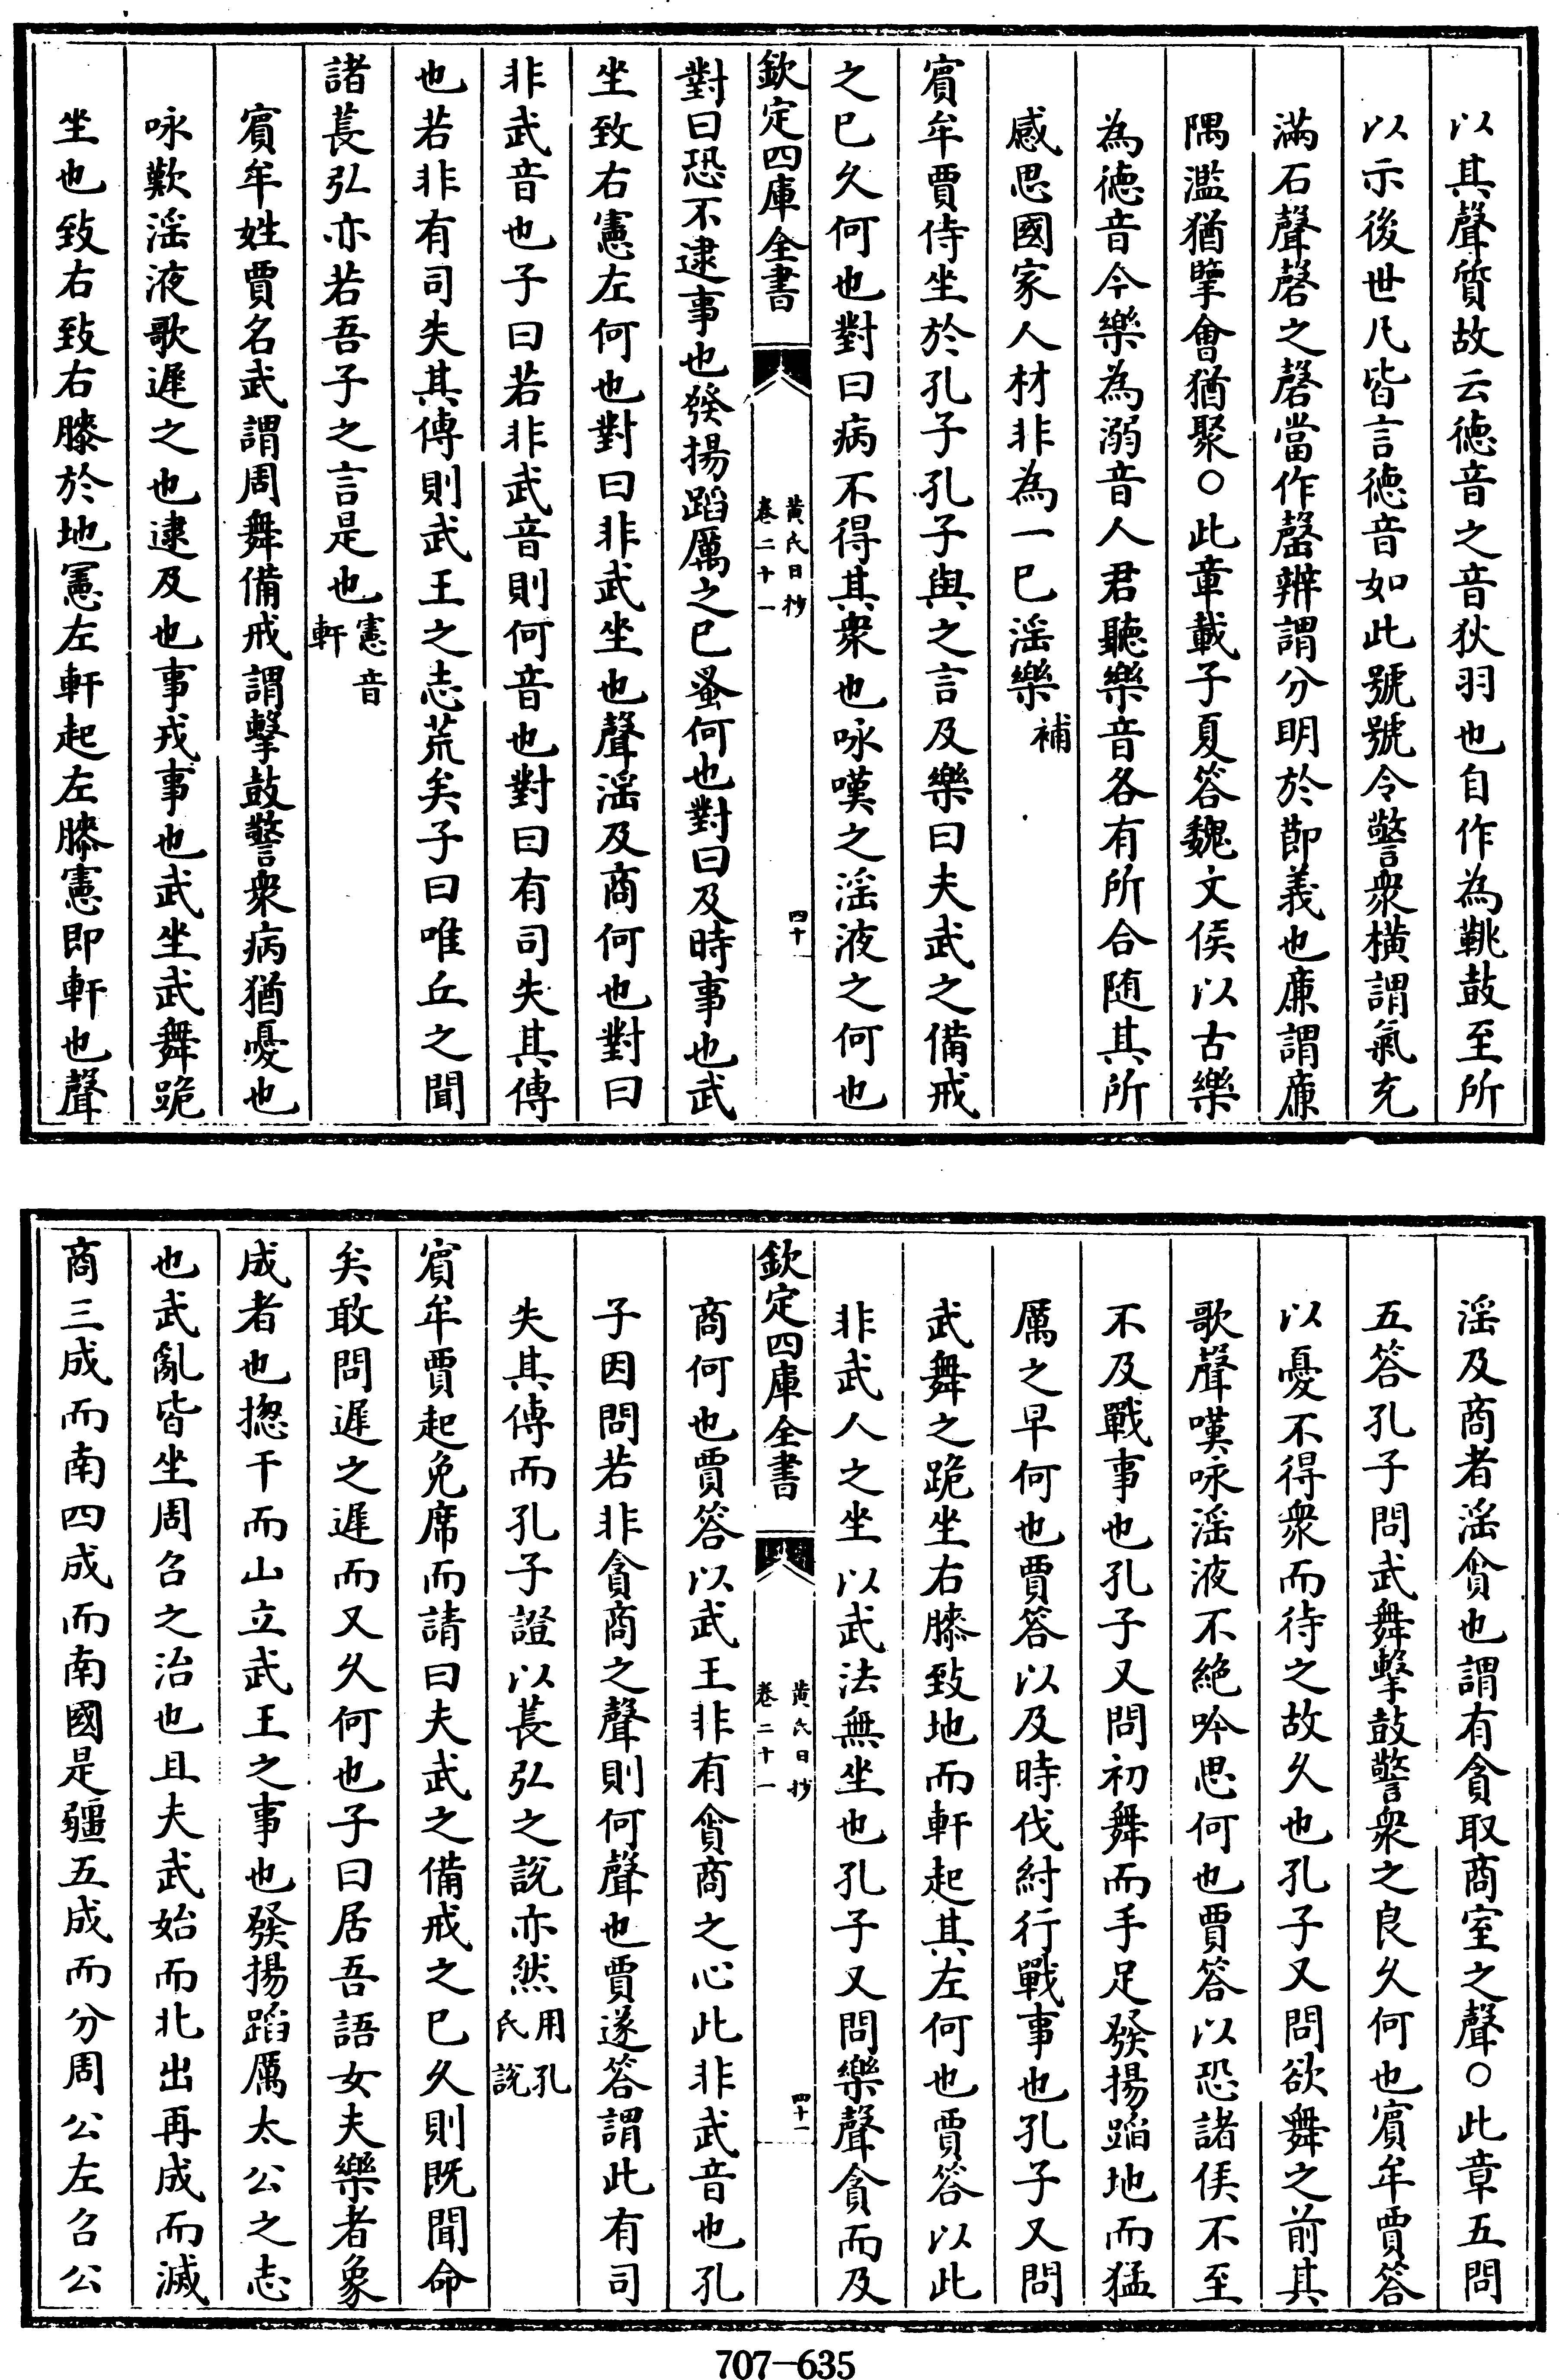 以其聲質故云徳音之音狄羽也自作為鞉鼓至所
以示後世凡皆言徳音如此號號令警衆橫謂氣充
滿石聲磬之磬當作罄辨謂分明於節義也廉謂廉
隅濫猶擥會猶聚○此章載子夏答魏文侯以古樂
為徳音今樂為溺音人君聽樂音各有所合随其所
感思國家人材非為一已滛樂補
賔牟賈侍坐於孔子孔子與之言及樂曰夫武之備戒
之已久何也對曰病不得其衆也咏嘆之滛液之何也
欽定四庫全書
黄氏日抄
卷二十一
四十
對曰恐不逮事也發揚蹈厲之已蚤何也對曰及時事也武
坐致右憲左何也對曰非武坐也聲滛及商何也對曰
非武音也子曰若非武音則何音也對曰有司失其傳
也若非有司失其傳則武王之志荒矣子曰唯丘之聞
諸萇弘亦若吾子之言是也憲音
軒
賔牟姓賈名武謂周舞備戒謂擊鼓警衆病猶憂也
咏歎滛液歌遲之也逮及也事戎事也武坐武舞跪
坐也致右致右膝於地憲左軒起左膝憲即軒也聲
滛及商者滛貪也謂有貪取商室之聲○此章五問
五答孔子問武舞擊鼓警衆之良久何也賔牟賈答
以憂不得衆而待之故久也孔子又問欲舞之前其
歌聲嘆咏滛液不絶吟思何也賈答以恐諸侯不至
不及戰事也孔子又問初舞而手足發揚蹈地而猛
厲之早何也賈答以及時伐紂行戰事也孔子又問
武舞之跪坐右膝致地而軒起其左何也賈答以此
非武人之坐以武法無坐也孔子又問樂聲貪而及
欽定四庫全書
黄氏日抄
卷二十一
四十一
商何也賈答以武王非有貪商之心此非武音也孔
子因問若非貪商之聲則何聲也賈遂答謂此有司
失其傳而孔子證以萇弘之說亦然用孔
氏說
賔牟賈起免席而請曰夫武之備戒之已久則既聞命
矣敢問遲之遲而又久何也子曰居吾語女夫樂者象
成者也揔干而山立武王之事也發揚蹈厲太公之志
也武亂皆坐周召之治也且夫武始而北出再成而滅
商三成而南四成而南國是疆五成而分周公左召公
707-635